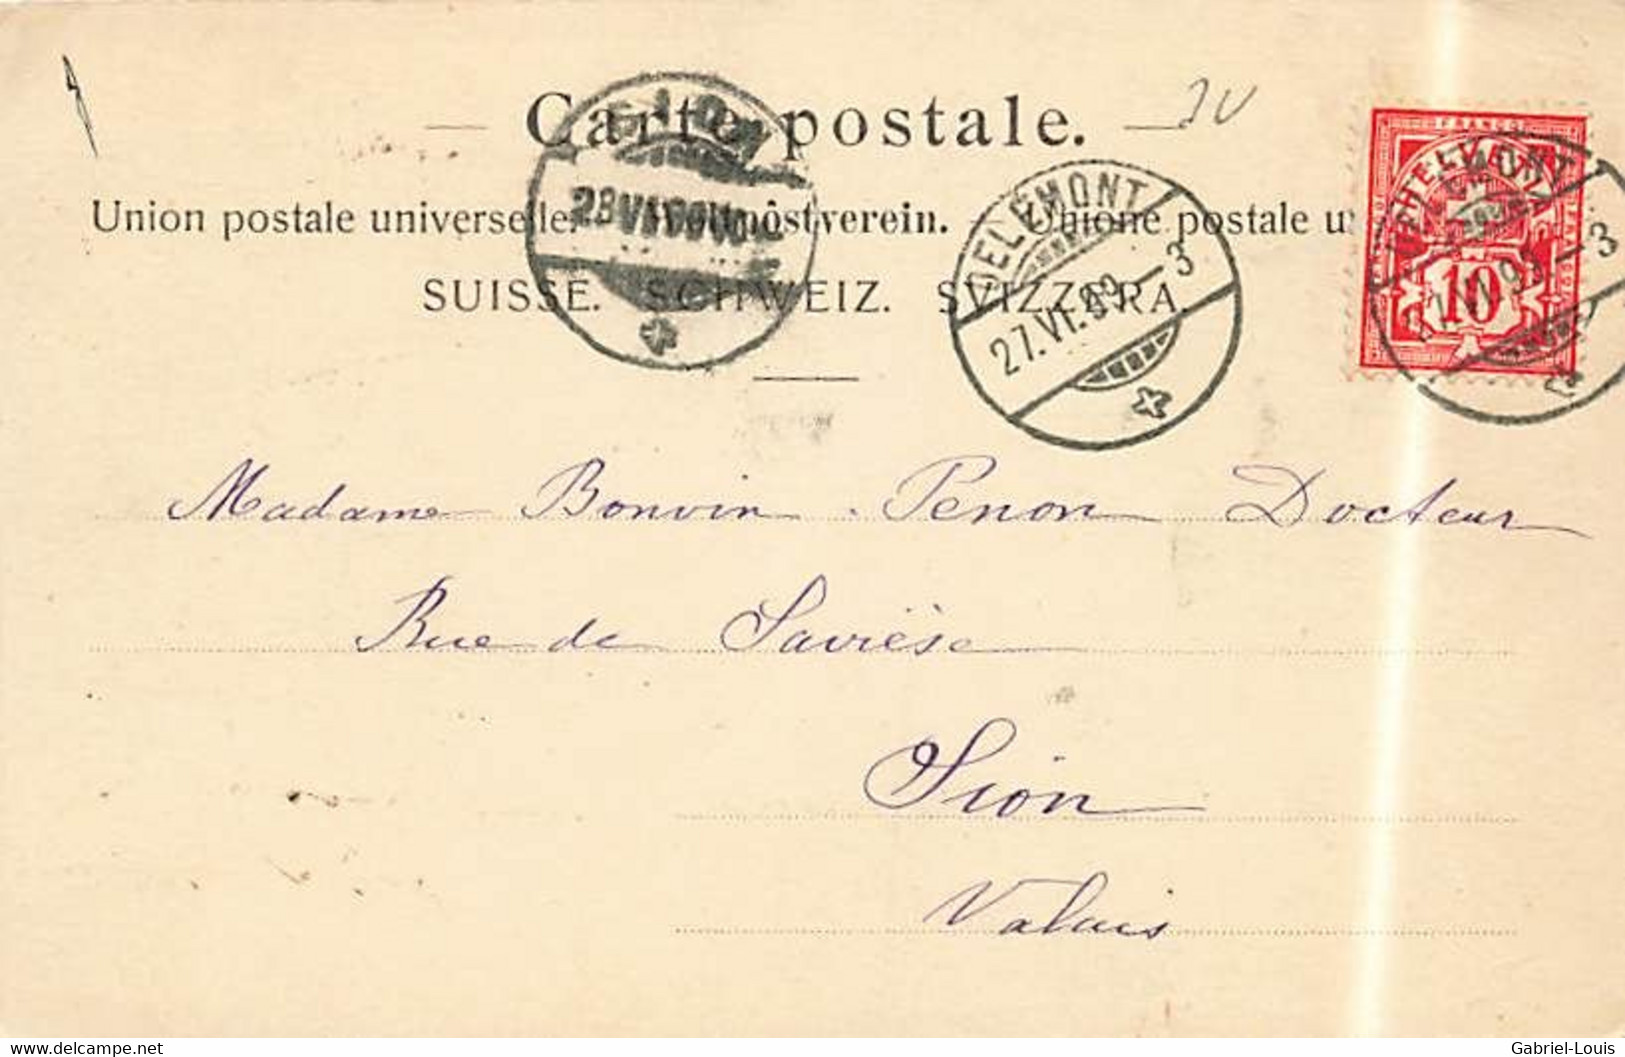 Carte postale.
Union postale universelle. Weltpostverein. – Unione postale u
SUISSE. SCHWEIZ. SVIZZERA.
SION
28 VI
DELÉMONT
27.VI.99–3
FRANCO
10
DELÉMONT
27.VI.99–3
Madame Bonvin-Penon Docteur
Rue de Savièse
Sion
Valais
delcampe.net
Gabriel-Louis